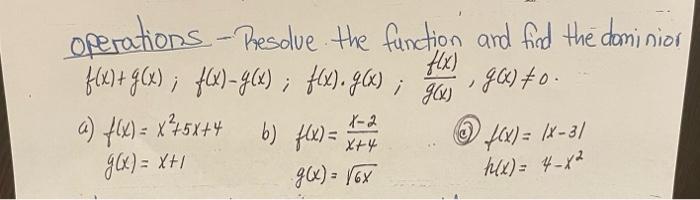 operations - Resolve the function and find the dominior
f(x)+g(x) ; f(x)-g(x) ; f(x).g(x) ; f(x)/g(x) , g(x) ≠ 0.
a) f(x) = x²+5x+4 b) f(x) = x-2/x+4 c) f(x) = |x-3|
g(x) = x+1 g(x) = √6x h(x) = 4-x²